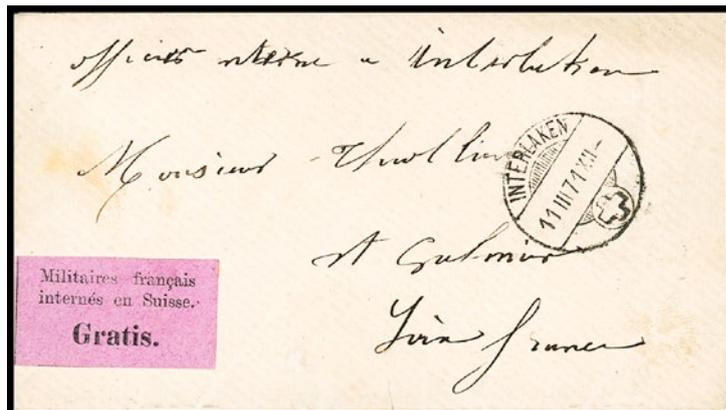 officier interné a Interlaken
Monsieur
INTERLAKEN
11 III 71 XII–
St Galmier
Loire France
Militaires français
internés en Suisse.
Gratis.